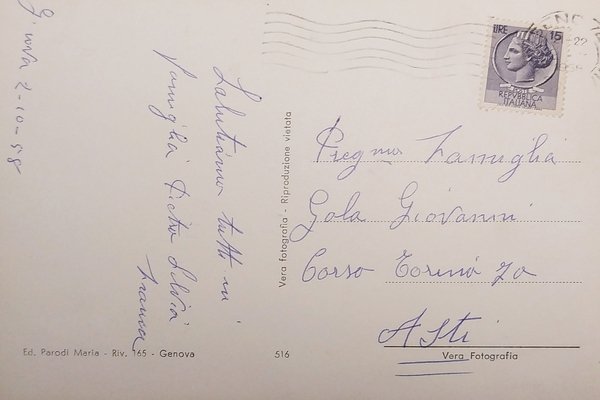 Genova 2-10-58
Salutiamo tutti in
famiglia Pietro Silvia
Franca
Ed. Parodi Maria - Riv. 165 - Genova
516
Vera fotografia - Riproduzione vietata
LIRE 15
REPVBBLICA
ITALIANA
22
Pregma Famiglia
Gola Giovanni
Corso Torino 70
Asti
Vera Fotografia